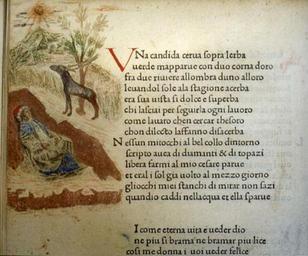 VNa candida cerua sopra lerba
uerde mapparue con duo corna doro
fra due riuiere allombra duno alloro
leuandol sole ala stagione acerba
era sua uista si dolce e superba
chi lasciai per seguirla ogni lauoro
come lauaro chen cercar thesoro
chon dilecto laffanno disacerba
Nessun mitocchi al bel collo dintorno
scripto auea di diamanti & di topazi
libera farmi al mio cesare parue
et era l sol gia uolto al mezzo giorno
gliocchi miei stanchi di mirar non sazi
quandio caddi nellacqua et ella sparue
I come eterna uita e ueder dio
ne piu si brama ne bramar piu lice
cosi me donna i uoi ueder felice